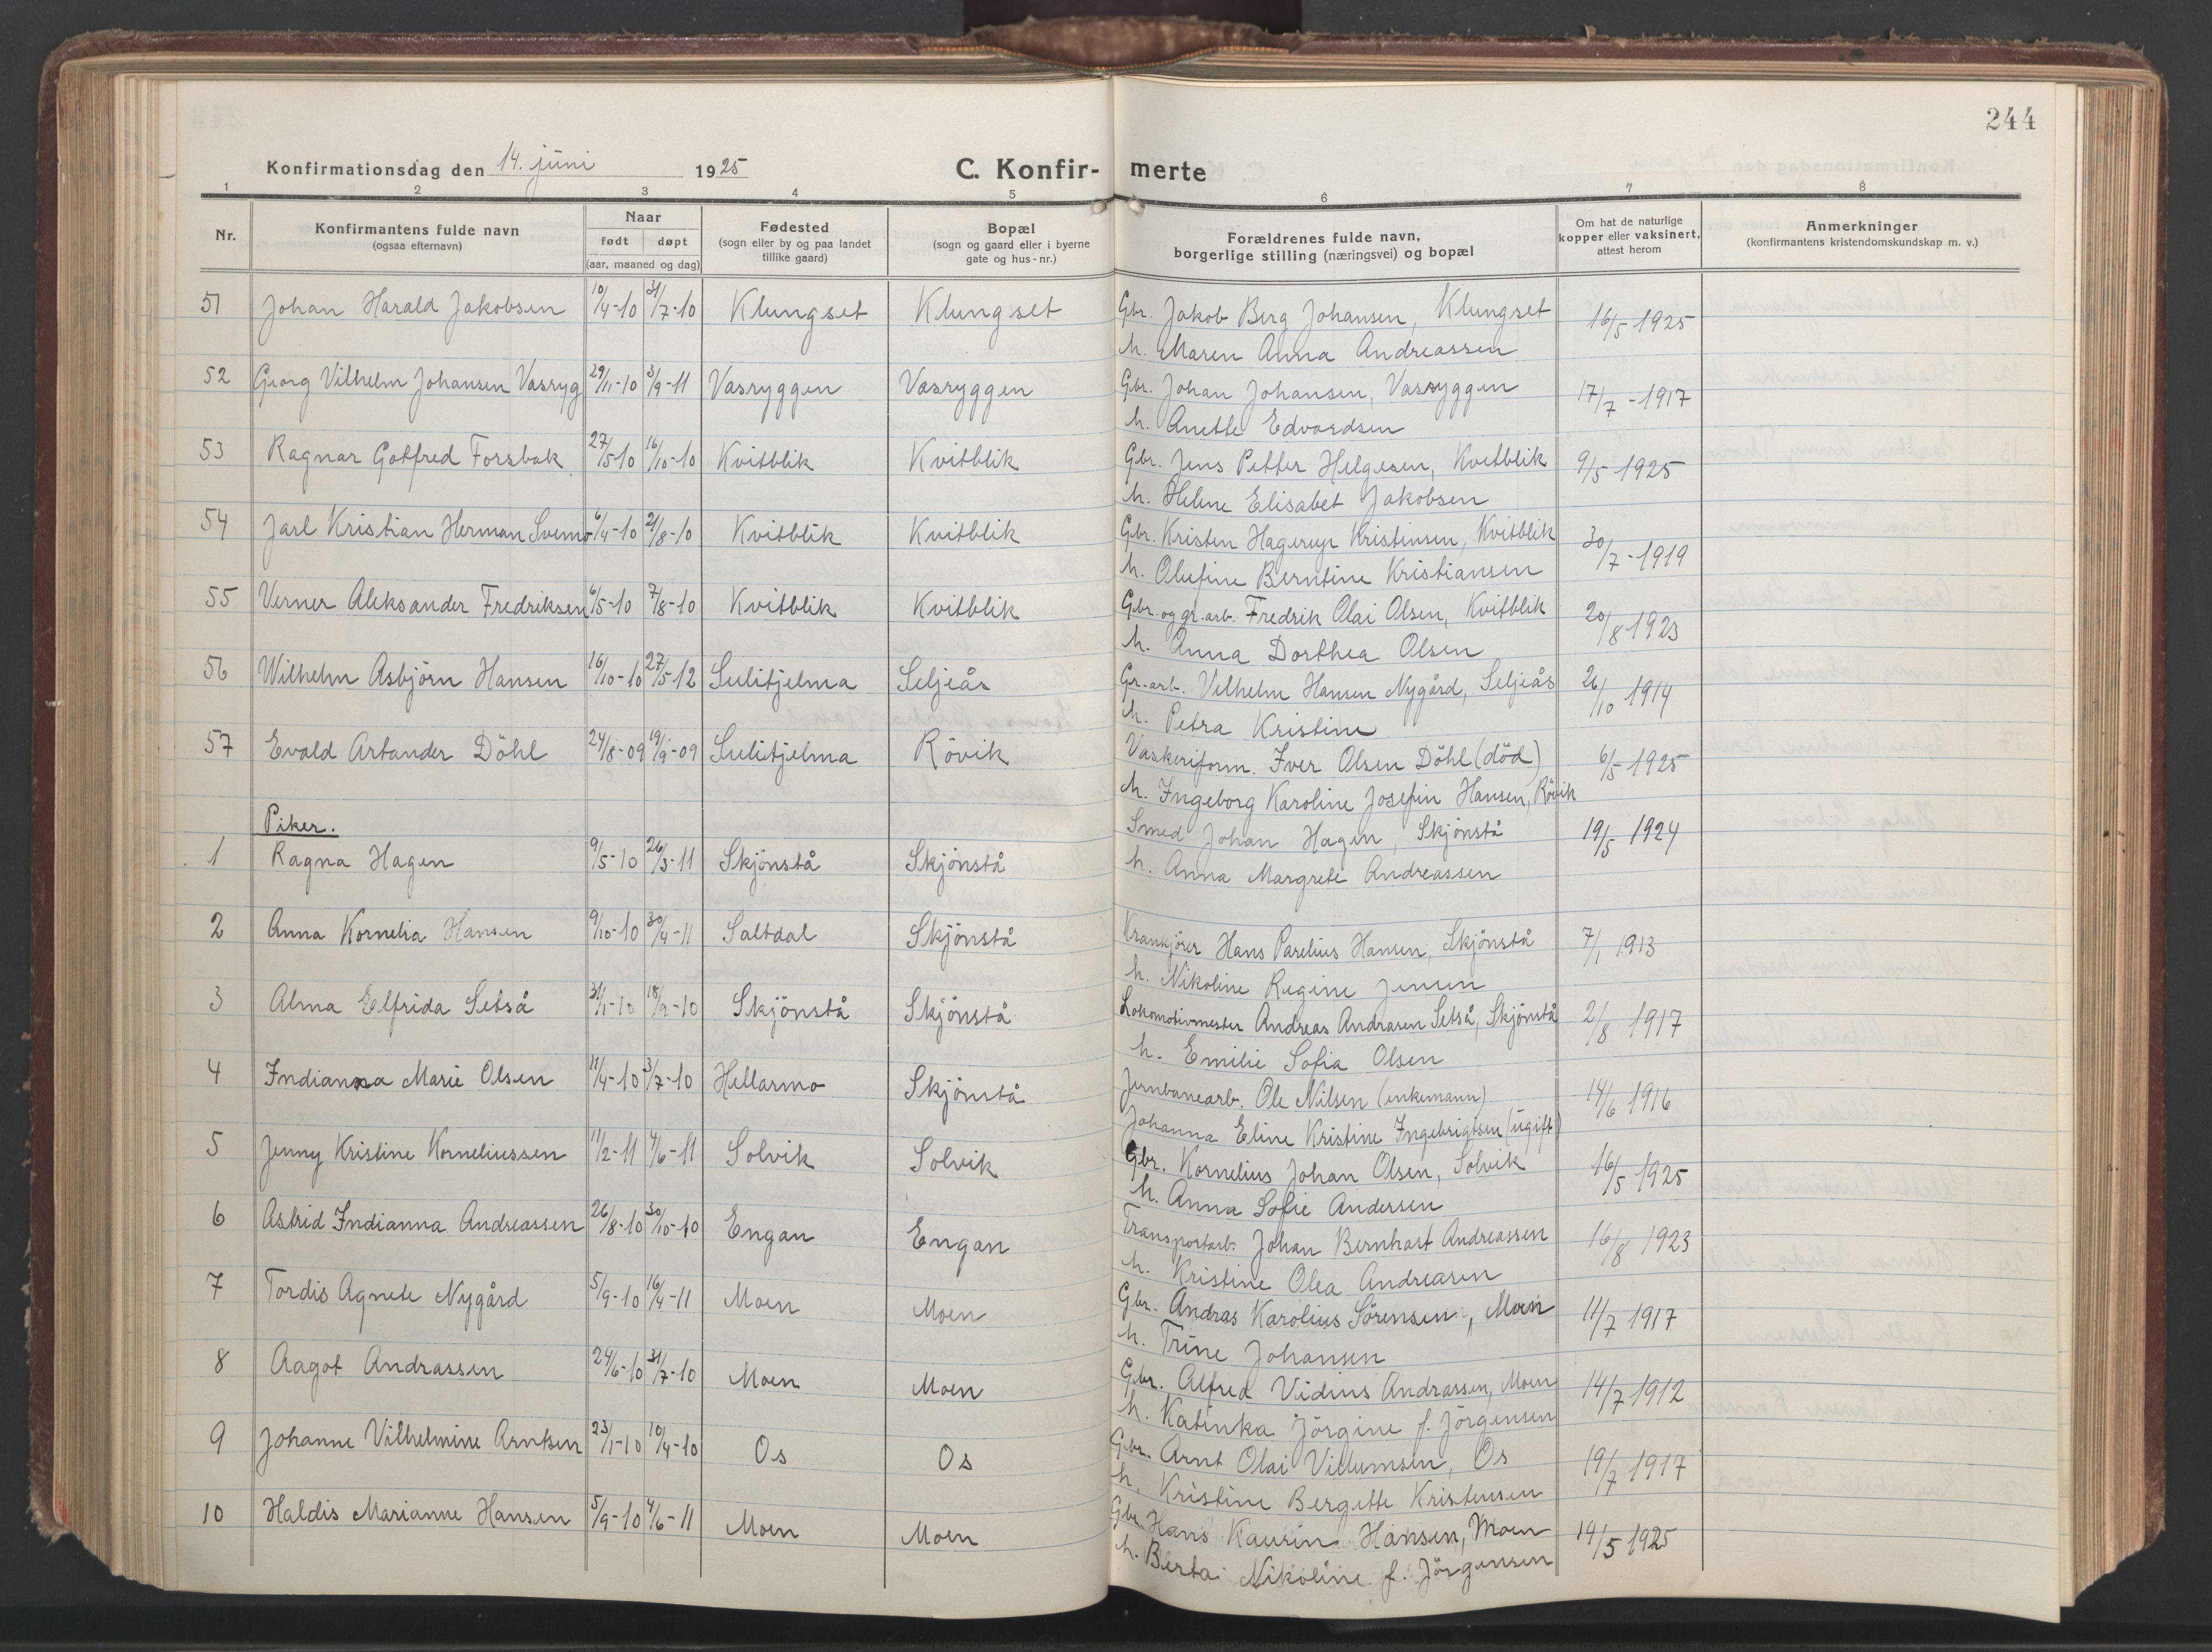 244
Konfirmationsdag den 14. juni 1925
C. Konfir- merte
1 2 3 4 5 6 7 8
Nr.
Konfirmantens fulde navn
(ogsaa efternavn)
Naar
født døpt
(aar, maaned og dag)
Fødested
(sogn eller by og paa landet
tillike gaard)
Bopæl
(sogn og gaard eller i byerne
gate og hus-nr.)
Forældrenes fulde navn,
borgerlige stilling (næringsvei) og bopæl
Om hat de naturlige
kopper eller vaksinert,
attest herom
Anmerkninger
(konfirmantens kristendomskundskap m. v.)
51 Johan Harald Jakobsen 10/4-10 31/7-10 Klungset Klungset Gbr. Jakob Berg Johansen, Klungset 16/5 1925
h. Maren Anna Andreassen
52 Georg Vilhelm Johansen Vasryg 29/11-10 3/9-11 Vasryggen Vasryggen Gbr. Johan Johansen, Vasryggen 17/7-1917
h. Anette Edvardsen
53 Ragnar Gotfred Forsbak 27/5-10 16/10-10 Kvitblik Kvitblik Gbr. Jens Petter Helgesen, Kvitblik 9/5-1925
h. Helene Elisabet Jakobsen
54 Jarl Kristian Herman Svemo 6/4-10 21/8-10 Kvitblik Kvitblik Gbr. Kristen Hagerup Kristensen, Kvitblik 30/7-1919
h. Olufine Berntine Kristiansen
55 Verner Aleksander Fredriksen 6/5-10 7/8-10 Kvitblik Kvitblik Gbr. og gr.arb. Fredrik Olai Olsen, Kvitblik 20/8 1923
h. Anna Dorthea Olsen
56 Wilhelm Asbjörn Hansen 16/10-10 27/5-12 Sulitjelma Seljeås Gr.arb. Vilhelm Hansen Nygård, Seljeås 26/10 1914
h. Petra Kristine
57 Evald Artander Döhl 24/8-09 19/9-09 Sulitjelma Rövik Vaskeriform. Iver Olsen Döhl (död) 6/5-1925
h. Ingeborg Karoline Josefin Hansen, Rövik
Piker.
1 Ragna Hagen 9/5-10 26/3-11 Skjönstå Skjönstå Smed Johan Hagen, Skjönstå 19/5 1924
h. Anna Margrete Andreassen
2 Anna Kornelia Hansen 9/10-10 30/4-11 Saltdal Skjönstå Krankjörer Hans Parelius Hansen, Skjönstå 7/1 1913
h. Nikoline Regine Jensen
3 Alma Elfrida Setså 31/1-10 18/9-10 Skjönstå Skjönstå Lokomotivmester Andreas Andrasen Setså, Skjönstå 2/8 1917
h. Emilie Sofia Olsen
4 Indianna Marie Olsen 11/4-10 3/7-10 Hellarmo Skjönstå Jernbanearb. Ole Nilsen (enkemann) 14/6 1916
Johanna Eline Kristine Ingebrigtsen (ugift)
5 Jenny Kristine Korneliussen 11/2-11 4/6-11 Solvik Solvik Gbr. Kornelius Johan Olsen, Solvik 16/5 1925
h. Anna Sofie Andersen
6 Astrid Indianna Andreassen 26/8-10 30/10-10 Engan Engan Transportarb. Johan Bernhart Andreassen 16/8 1923
h. Kristine Olea Andreasen
7 Tordis Agnete Nygård 5/9-10 16/4-11 Moen Moen Gbr. Andras Karolius Sörensen, Moen 11/7 1917
h. Trine Johansen
8 Aagot Andrassen 24/6-10 31/7-10 Moen Moen Gbr. Alfred Vidius Andrassen, Moen 14/7 1912
h. Katinka Jörgine f. Jörgensen
9 Johanne Vilhelmine Arntsen 23/1-10 10/4-10 Os Os Gbr. Arnt Olai Villumsen, Os 19/7 1917
h. Kristine Bergitte Kristensen
10 Haldis Marianne Hansen 5/9-10 4/6-11 Moen Moen Gbr. Hans Kaurin Hansen, Moen 19/5 1925
h. Berta Nikoline f. Jörgensen